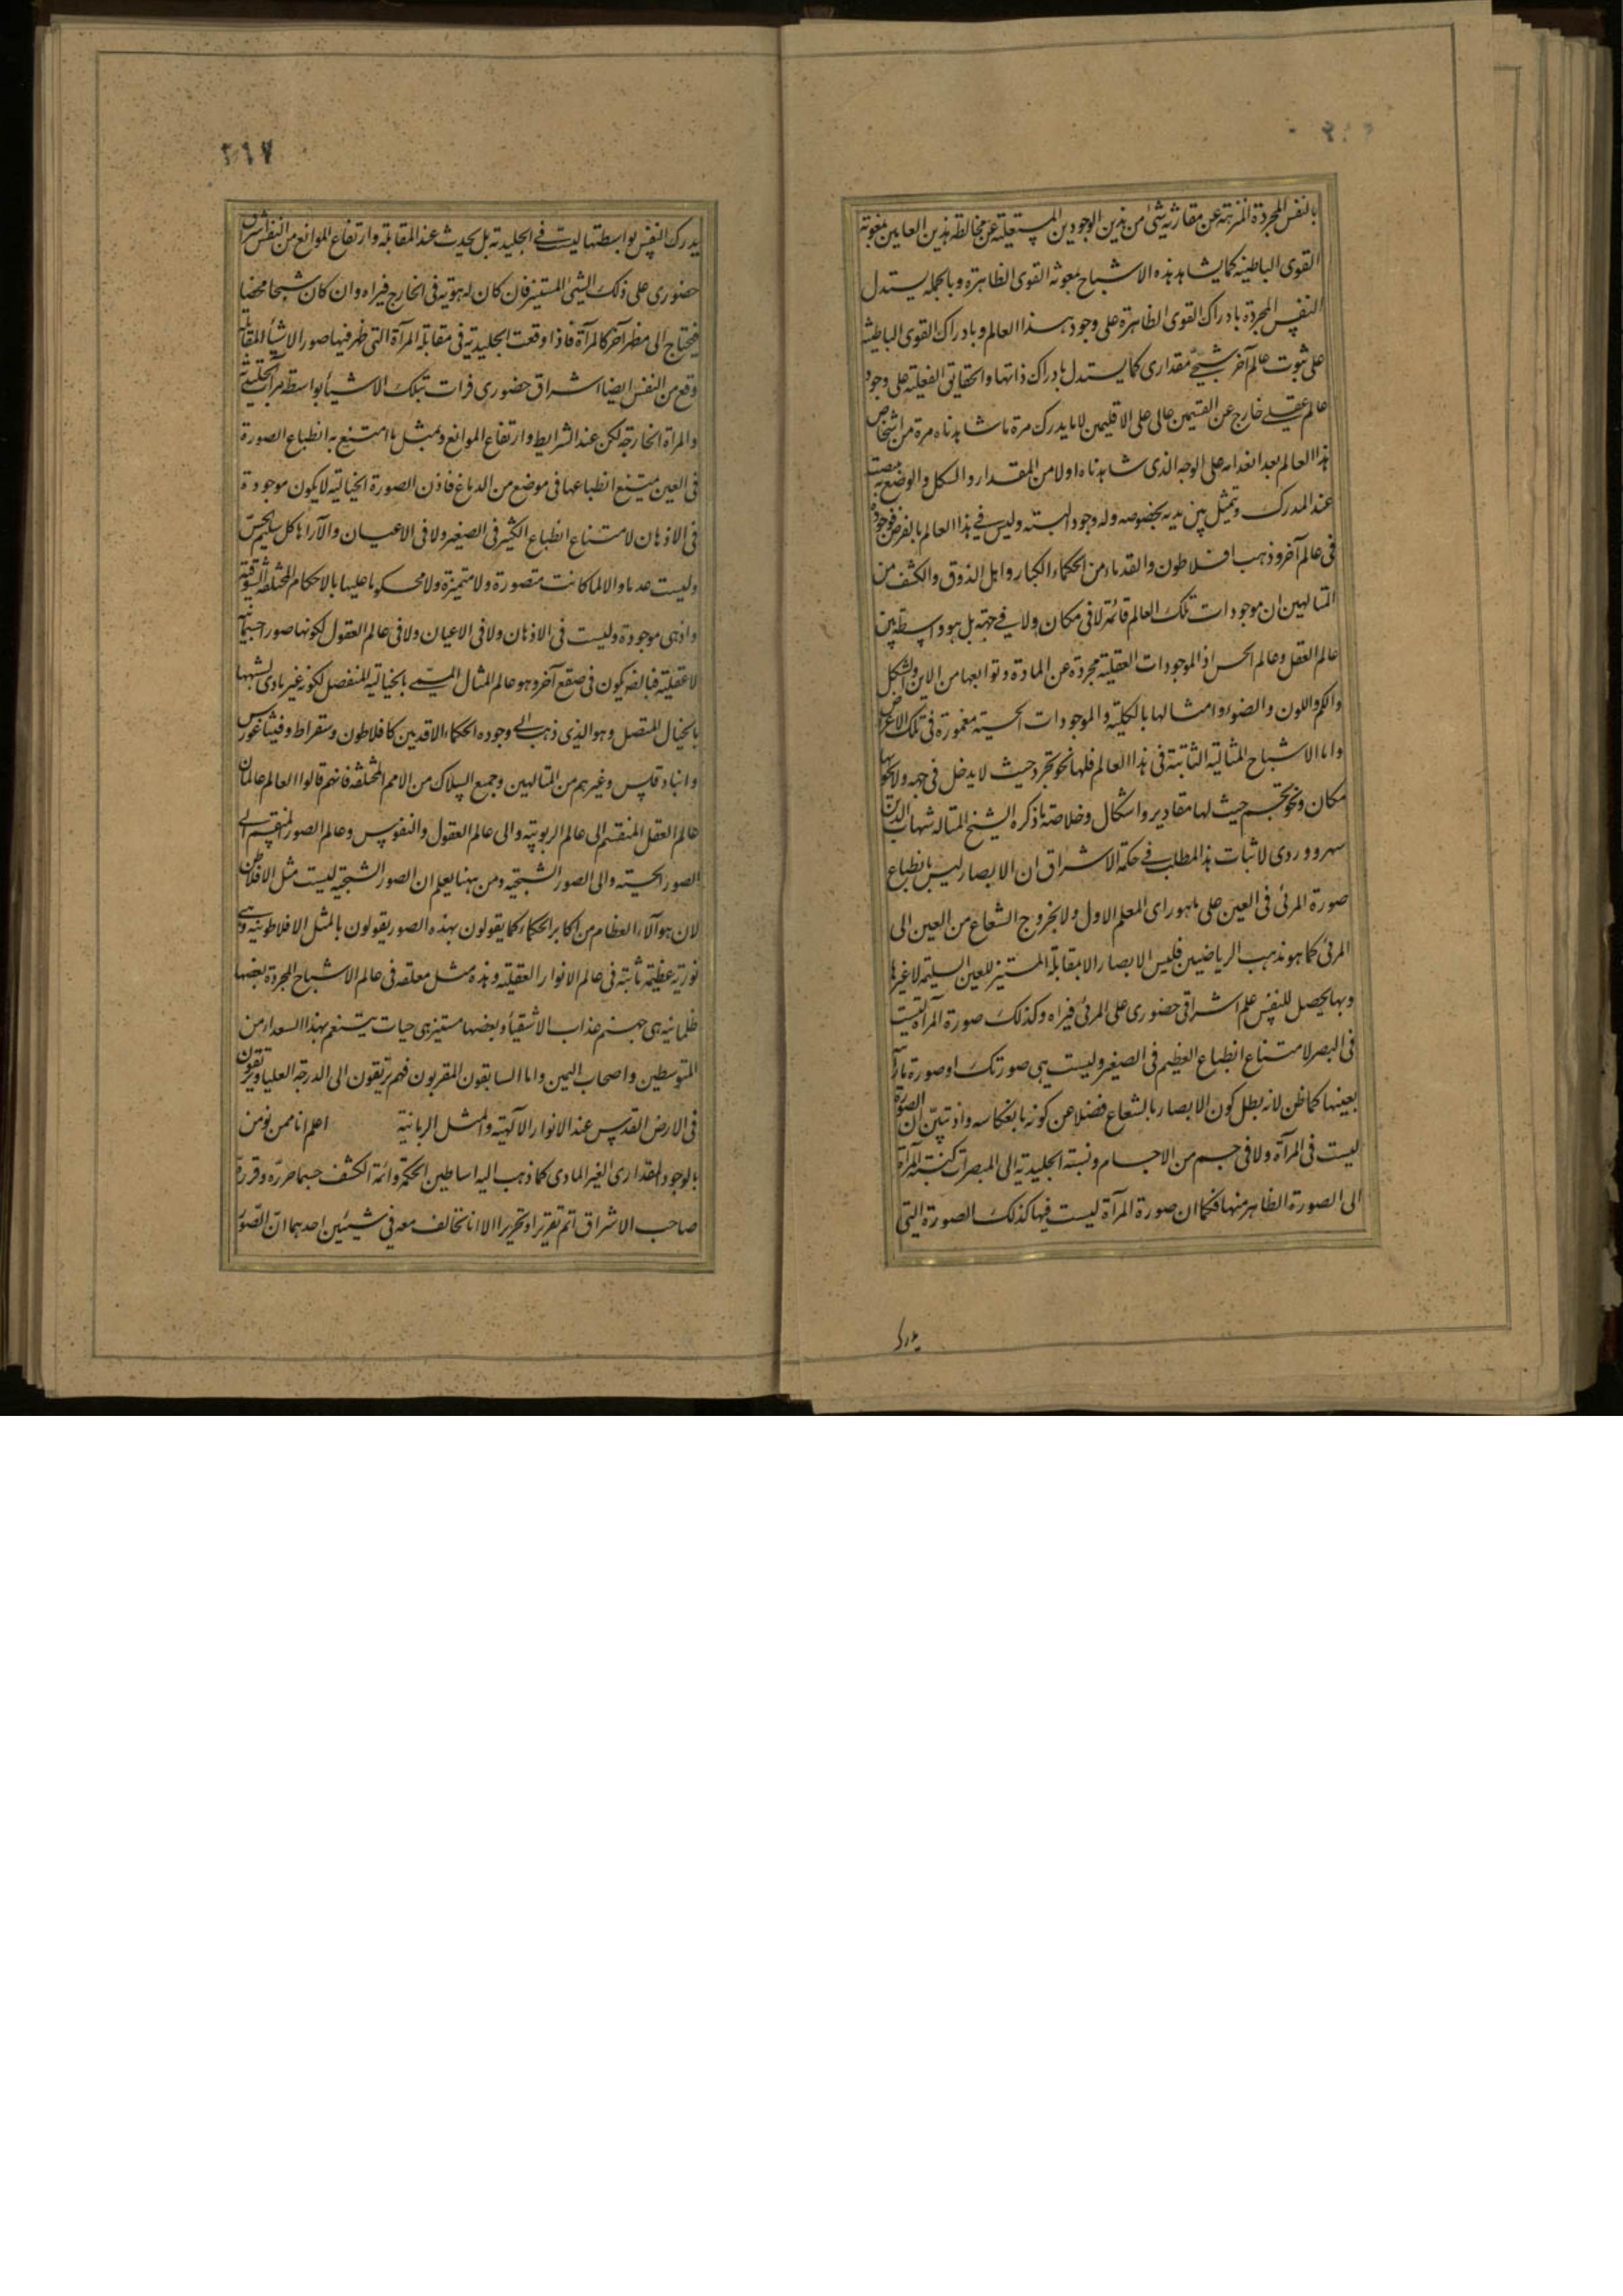 بالنفس المجردة المنزهة عن مقارنة شئ من هذين الوجودين المستعلية عن مخالطة هذين العالمين بمعونة
القوى الباطنية كما يشاهد هذه الاشباح بمعونة القوى الظاهرة وبالجملة يستدل
النفس المجردة بادراك القوى الظاهرة على وجود هذا العالم وبادراك القوى الباطنية
على ثبوت عالم آخر شبحي مقداري كما يستدل بادراك ذاتها والحقايق العقلية على وجود
عالم عقلي خارج عن القسمين عالى على الاقليمين لانا يدرك مرة ما شاهدناه مرة من اشخاص
هذا العالم بعد انعدامه على الوجه الذى شاهدناه اولا من المقدار والشكل والوضع به
عند المدرك وتمثل بين يديه بخصوصه وله وجود البته وليس في هذا العالم بالفرض فوجوده
فى عالم آخر وذهب افلاطون والقدماء من الحكماء الكبار واهل الذوق والكشف من
المتالهين ان موجودات تلك العالم قائمة لا فى مكان ولا في جهة بل هو واسطة بين
عالم العقل وعالم الحس اذ الموجودات العقلية مجردة عن المادة وتوابعها من الاين والشكل
والكم واللون والضوء وامثالها بالكلية والموجودات الحسية مغمورة فى تلك الاعراض
واما الاشباح المثالية الثابتة فى هذا العالم فلها نحو تجرد حيث لا يدخل فى جهة ولا يحويها
مكان ونحو تجسم حيث لها مقادير واشكال وخلاصة ما ذكره الشيخ المتاله شهاب الدين
سهروردى لاثبات هذا المطلب في حكمة الاشراق ان الابصار ليس بانطباع
صورة المرئى فى العين على ما هو راى المعلم الاول ولا بخروج الشعاع من العين الى
المرئى كما هو مذهب الرياضيين فليس الابصار الا بمقابلة المستنير للعين السليمة لا غيرها
وبها يحصل للنفس علم اشراقى حضورى على المرئى فيراه وكذلك صورة المرآة ليست
فى البصر لامتناع انطباع العظيم فى الصغير وليست هى صورتك او صورة ما رآيته
بعينها كما ظن لانه بطل كون الابصار بالشعاع فضلا عن كونه بانعكاسه واذ تبين ان الصورة
ليست فى المرآة ولا فى جسم من الاجسام ونسبة الجليدية الى المبصرات كنسبة المرآة
الى الصورة الظاهر منها فكما ان صورة المرآة ليست فيها كذلك الصورة التى
يدرك
٢٦٧
يدرك النفس بواسطتها ليست في الجليدية بل يحدث عند المقابلة وارتفاع الموانع من النفس اشراق
حضورى على ذلك الشئ المستنير فان كان له هوية فى الخارج فيراه وان كان شبحا محضا
فيحتاج الى مظهر آخر كالمرآة فاذا وقعت الجليدية فى مقابلة المرآة التى ظهر فيها صور الاشياء المقابلة
وقع من النفس ايضا اشراق حضورى فرات تلك الاشياء بواسطة مرآة الجليدية
والمراة الخارجة لكن عند الشرايط وارتفاع الموانع وبمثل ما امتنع به انطباع الصورة
فى العين يمتنع انطباعها فى موضع من الدماغ فاذن الصورة الخيالية لا يكون موجودة
فى الاذهان لامتناع انطباع الكثير فى الصغير ولا فى الاعيان والا رآها كل سليم الحس
وليست عدما والا لما كانت متصورة ولا متميزة ولا محكوما عليها بالاحكام المختلفة الثبوتية
واذ هى موجودة وليست فى الاذهان ولا فى الاعيان ولا فى عالم العقول لكونها صورا جسمانية
لا عقلية فبالضرورة يكون فى صقع آخر وهو عالم المثال المسمى بالخيالية المنفصل لكونه غير مادى تشبها
بالخيال المتصل وهو الذى ذهب الى وجوده الحكماء الاقدمين كافلاطون وسقراط وفيثاغورس
وانباذقلس وغيرهم من المتالهين وجميع السلاك من الامم المختلفة فانهم قالوا العالم عالمان
عالم العقل المنقسم الى عالم الربوبية والى عالم العقول والنفوس وعالم الصور المنقسم الى
الصور الحسية والى الصور الشبحية ومن ههنا يعلم ان الصور الشبحية ليست مثل الافلاطن
لان هوآلاء العظام من اكابر الحكماء كما يقولون بهذه الصور يقولون بالمثل الافلاطونية وهى
نورية عظيمة ثابتة فى عالم الانوار العقلية وهذه مثل معلقه فى عالم الاشباح المجردة بعضها
ظلمانية هى جهنم عذاب الاشقياء وبعضها مستنيرة هى جنات يتنعم بهذا السعداء من
المتوسطين واصحاب اليمين واما السابقون المقربون فهم يرتقون الى الدرجة العليا ويرتقون
فى الارض القدس عند الانوار الآلهية والمثل الربانية اعلم انا ممن نومن
بالوجود المقدارى الغير المادى كما ذهب اليه اساطين الحكمة وائمة الكشف حسبما حرره وقررة
صاحب الاشراق اتم تقريرا وتحريرا الا انا نخالف معه في شيئين احدهما ان الصور